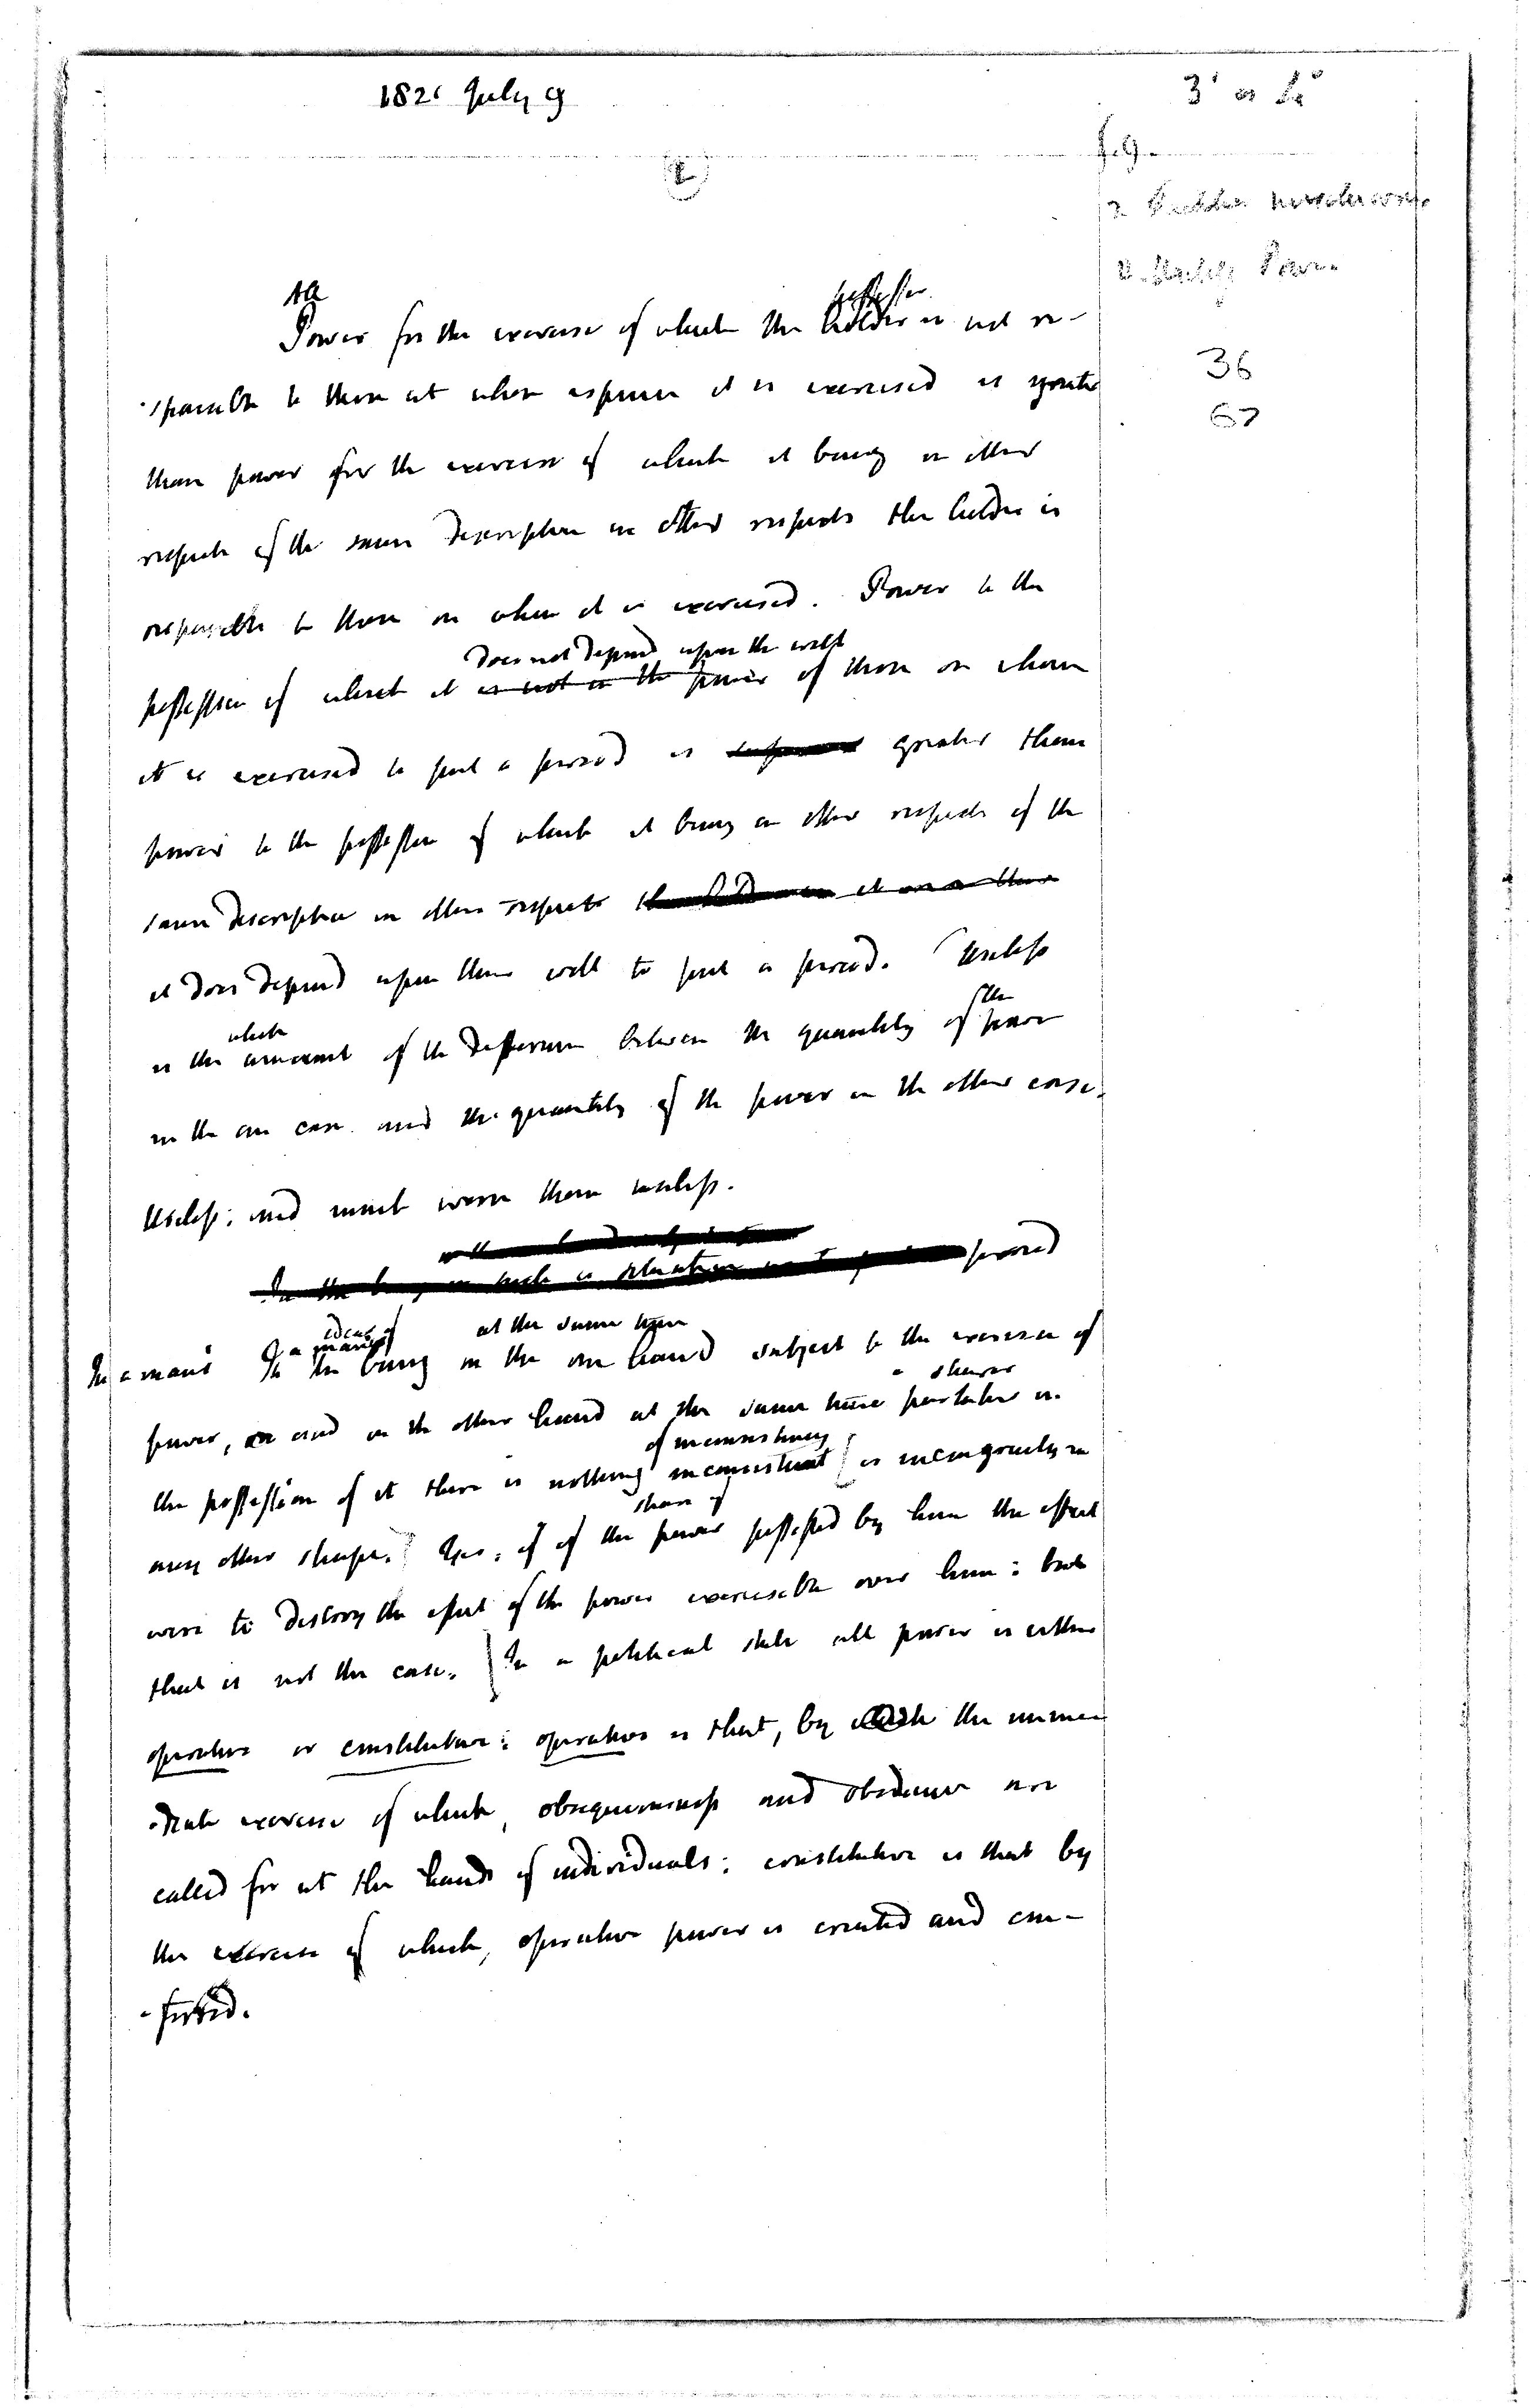 1821 July 9
3 or
f. 9.
36
67
Power for the exercise of which the holder possessor is not re-
-sponsible to those at whose expence it is exercised is greater
than power for the exercise of which it being in other
respects of the same description in other respects the holder is
responsible to those on whom it is exercised. Power to the
does not depend upon the will
possession of which it is not in the power of those on whom
it is exercised to put a period is greater than
power to the possession of which it being in other respects of the
same description in other respects
it does depend upon their will to put a period. Useless
which
the
is the amount of the difference between the quantity of power
in the one case and the quantity of the power in the other case.
Useless: and much worse than useless.
period
ideas of
at the same time
In a man's In a man's In the being on the one hand subject to the exercise of
a sharer
power, and on the other hand at the same time partaker in
of inconsistency
the possession of it there is nothing inconsistent or incongruity in
share of
any other shape. Yes: if of the power possessed by him the effect
were to destroy the effect of the power exercisable over him: but
that is not the case. In a political state all power is either
operative or constitutive: operative is that, by the imme-
-diate exercise of which, obsequiousness and obedience are
called for at the hands of individuals: constitutive is that by
the exercise of which, operative power is created and con-
-ferred.